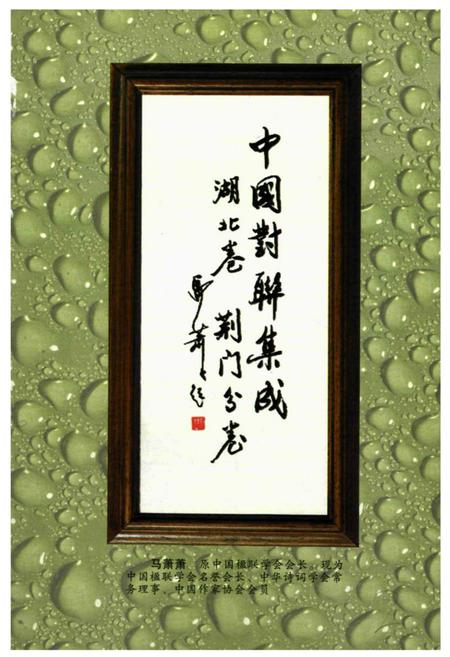 中國對聯集成
湖北卷 荆门分卷
馬萧萧题
马萧萧 原中国楹联学会会长。现为
中国楹联学会名誉会长、中华诗词学会常
务理事、中国作家协会会员